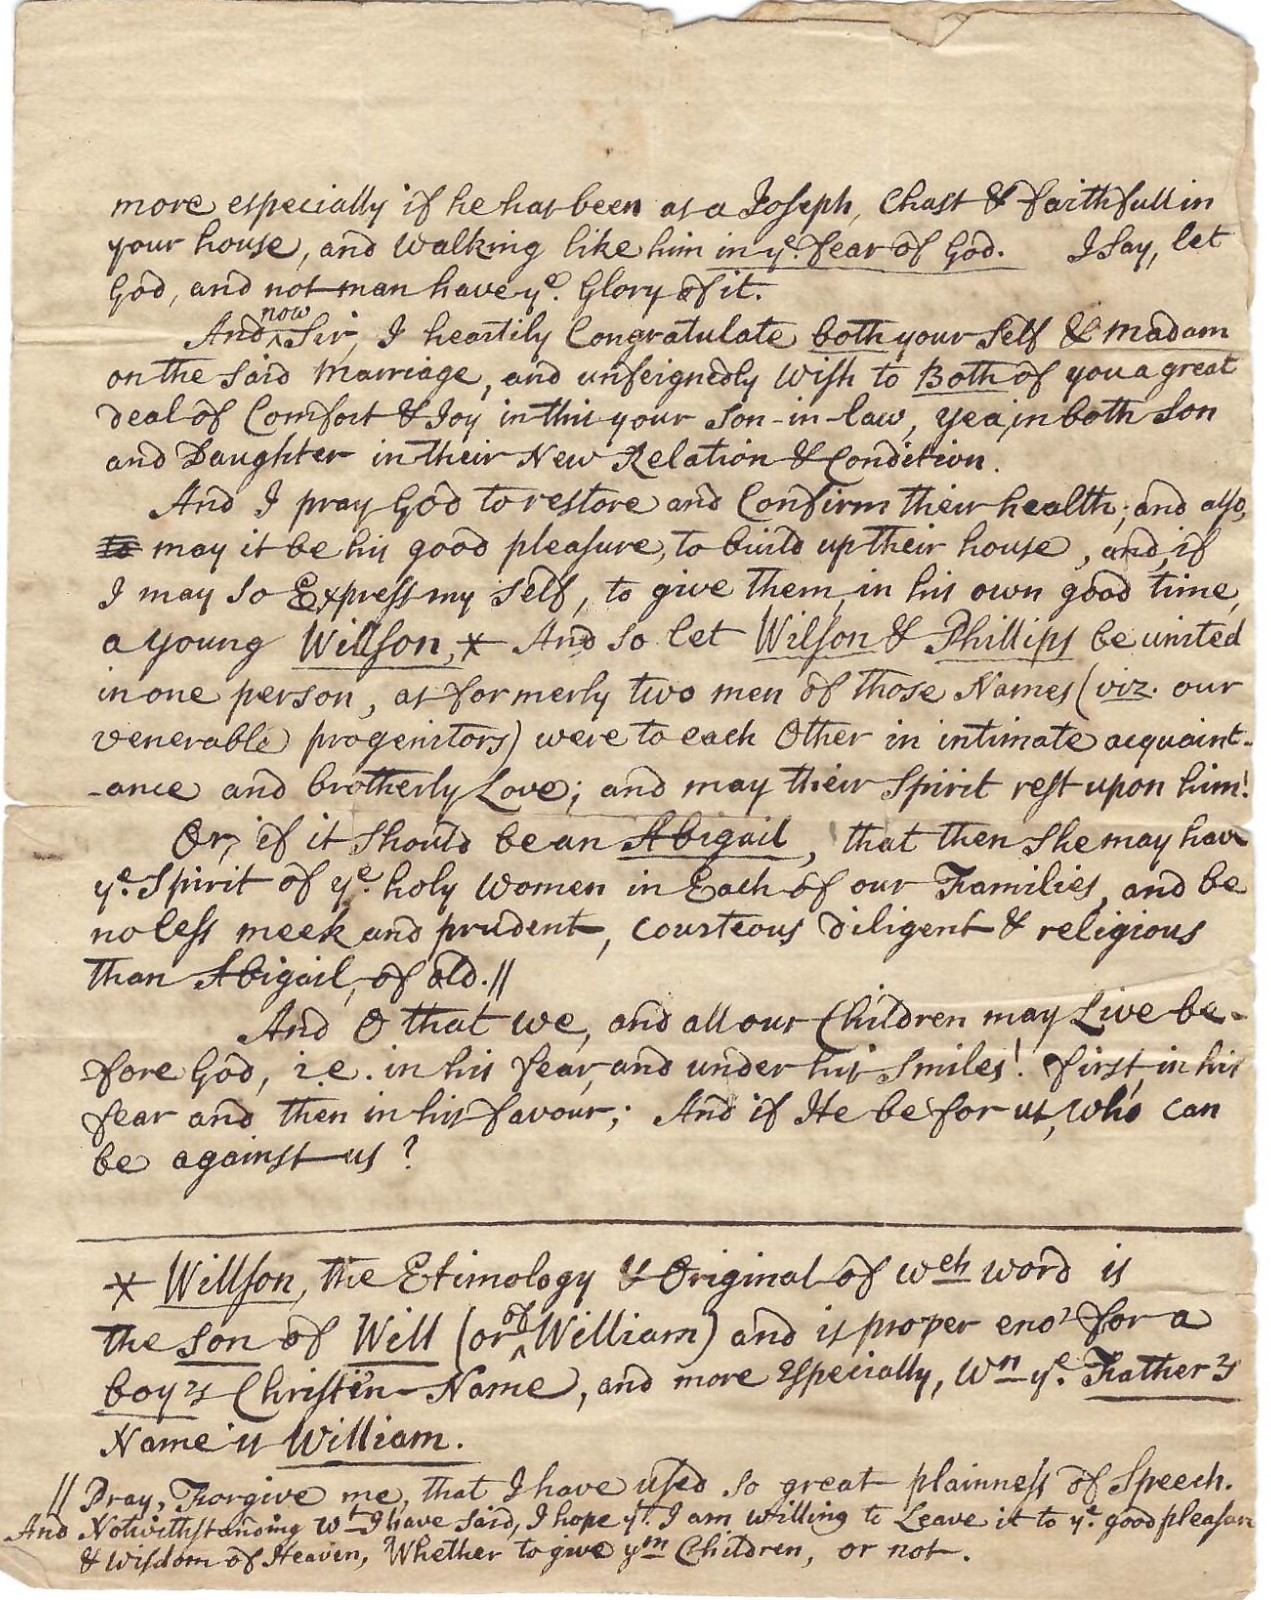 more especially if he has been as a Joseph, Chast & faithfull in
your house, and walking like him in ye. fear of God. I say, let
God, and not man have ye. Glory of it.
And now Sir, I heartily Congratulate both your self & madam
on the said Marriage, and unfeignedly wish to Both of you a great
deal of Comfort & Joy in this your Son-in-law, yea, in both Son
and Daughter in their New Relation & Condition.
And I pray God to restore and Confirm their health; and also,
to may it be his good pleasure, to build up their house, and, if
I may so Express my self, to give them, in his own good time,
a young Willson,* And so let Wilson & Phillips be united
in one person, as formerly two men of those Names (viz. our
venerable progenitors) were to each Other in intimate acquaint-
-ance and brotherly Love; and may their Spirit rest upon him!
Or, if it should be an Abigail, that then she may have
ye. Spirit of ye. holy women in Each of our Families, and be
no less meek and prudent, courteous diligent & religious
than Abigail, of old.//
And O that we, and all our Children may Live be-
fore God, i.e. in his fear, and under his Smiles! first, in his
fear and then in his favour; And if He be for us, who can
be against us?
* Willson, the Etimology & Original of wch word is
the son of Will (or of William) and is proper eno' for a
boy's Christen-Name, and more Especially, wn ye. Father's
Name is William.
// Pray, Forgive me, that I have used so great plainness of Speech.
And Notwithstanding wt I have said, I hope yt. I am willing to Leave it to ye. good pleasure
& wisdom of Heaven, Whether to give ym Children, or not.